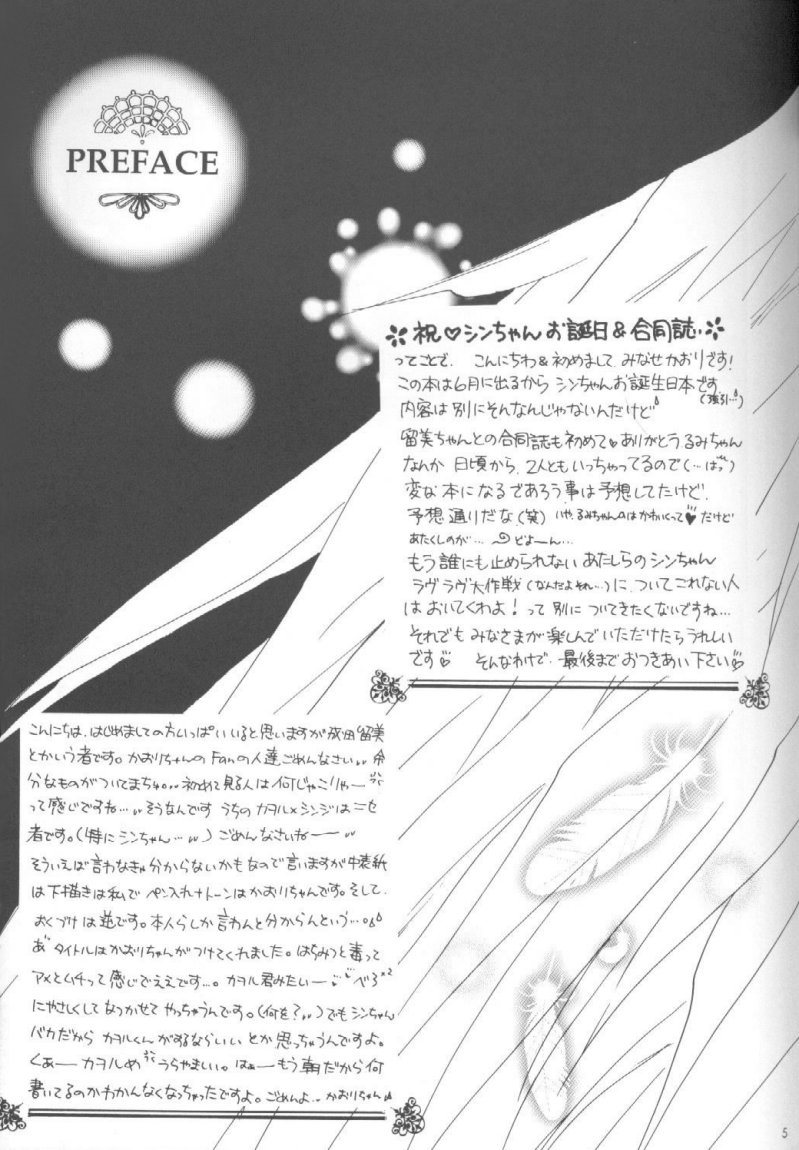 PREFACE
祝♡シンちゃんお誕日&合同誌
ってことで、こんにちわ&初めまして、みなせかおりです!
この本は6月に出るからシンちゃんお誕生日本です
(強引…)
内容は別にそんなんじゃないんだけど
留美ちゃんとの合同誌も初めて♥ありがとうるみちゃん
なんか 日頃から、2人ともいっちゃってるので(…はっ)
変な本になるであろう事は予想してたけど、
予想通りだな(笑) いや、るみちゃんのはかわいくって♥だけど
あたくしのが… どよーん…
もう誰にも止められない あたしらのシンちゃん
ラヴラヴ大作戦(なんだよそれ…)に、ついてこれない人
はおいてくわよ!って 別についてきたくないですね…
それでもみなさまが楽しんでいただけたらうれしい
です♡ そんなわけで、最後までおつきあい下さい♡
こんにちは、はじめましての方いっぱいいると思いますが成田留美
とかいう者です。かおりちゃんのFanの人達ごめんなさい、余
分なものがついてまちゅ。初めて見る人は何じゃこりゃー
って感じですね…そうなんです うちのカヲル×シンジはニセ
者です。(特にシンちゃん…)ごめんなさいねー
そういえば言わなきゃ分からないかもなので言いますが中表紙
は下描きは私でペン入れ+トーンはかおりちゃんです。そして、
おくづけは逆です。本人らしか言わんと分からんという…。
あ タイトルはかおりちゃんがつけてくれました。はちみつと毒って
アメとムチって感じでええです…。カヲル君みたいー
にやさしくしてなつかせてやっちゃうんです。(何を?)でもシンちゃん
バカだからカヲルくんがするならいいとか思っちゃうんですよ。
くぁーカヲルめ うらやましい。はぁーもう朝だから何
書いてるのかわかんなくなっちゃったですよ。ごめんよ…かおりちゃん
5